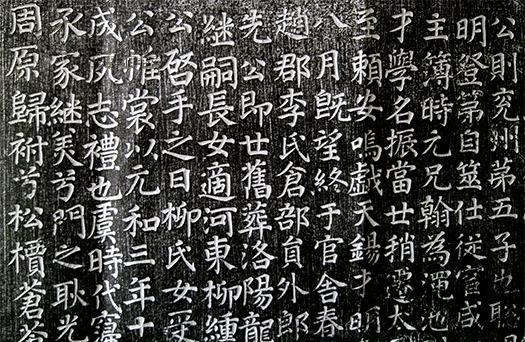 公則兖州第五子也
明登第自筮仕従官咸
主簿時元兄翰為澠池
才學名振當廿稍遷太
至頼安嗚戯天錫才明
八月既望終于官舎春
趙郡李氏倉部貟外郎
先公即廿舊葬洛陽龍
継嗣長女適河東柳
公啓手之日柳氏女受
公帷裳以元和三年十
成夙志禮也虞時代寖
承家継美兮門之耿光
周原歸祔兮松檟蒼蒼